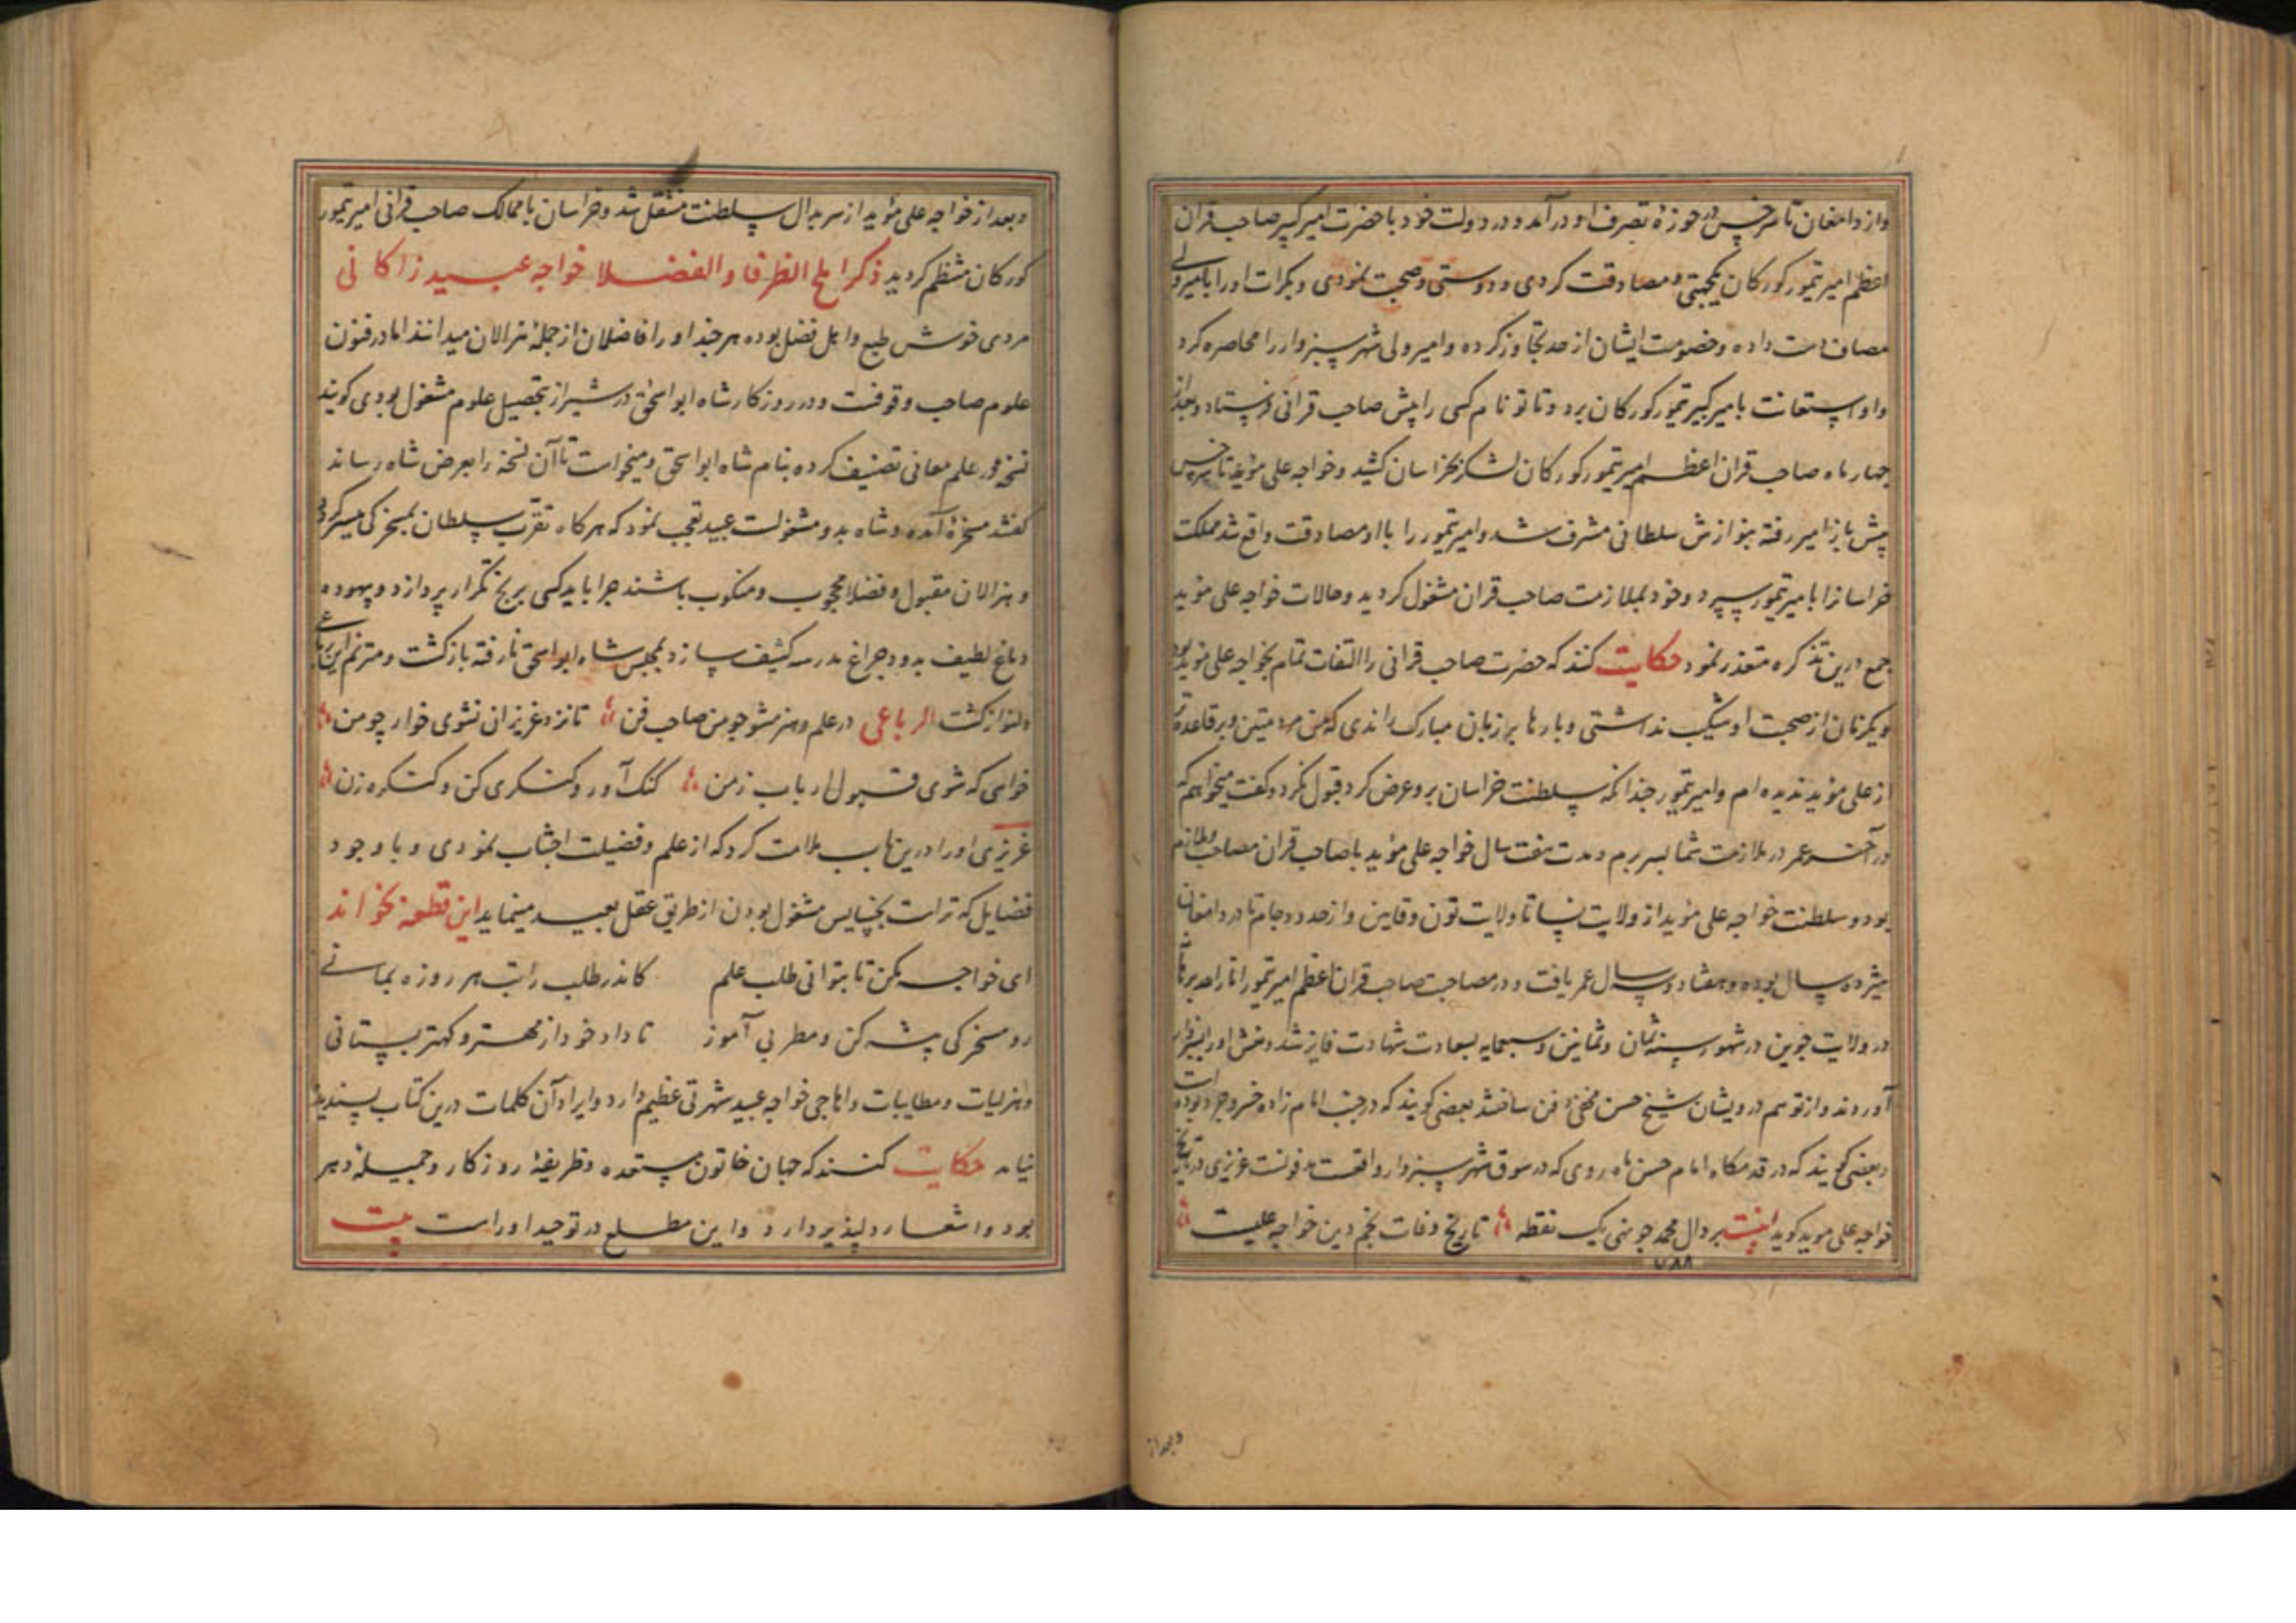 واز دامغان تا سرخس در حوزهٔ تصرف او در آمد و در دولت خود با حضرت امیر کبیر صاحب قران
اعظم امیر تیمور کورکان یکجهتی و مصادقت کردی و دوستی و صحبت نمودی و بکرات او را با امیر ولی
مصاف دست داده و خصومت ایشان از حد تجاوز کرده و امیر ولی شهر سبزوار را محاصره کرد
و او استعانت بامیر کبیر تیمور کورکان برد و تا تو نام کسی را پیش صاحب قرانی فرستاد و بعد از
چهار ماه صاحب قران اعظم امیر تیمور کورکان لشکر بخراسان کشید و خواجه علی مؤید تا سرخس
پیش باز امیر رفته بنوازش سلطانی مشرف شد و امیر تیمور را با او مصادقت واقع شد مملکت
خراسانرا بامیر تیمور سپرد و خود بملازمت صاحب قران مشغول کردید و حالات خواجه علی مؤید
جمع درین تذکره متعذر نمود حکایت کنند که حضرت صاحب قرانی را التفات تمام بخواجه علی مؤید بود
و یکزمان از صحبت او شکیب نداشتی و بارها بر زبان مبارک راندی که من مرد متین و بر قاعده تر
از علی مؤید ندیده ام و امیر تیمور چندانکه سلطنت خراسان برو عرض کرد قبول نکرد و کفت میخواهم که
در آخر عمر در ملازمت شما بسر برم و مدت هفت سال خواجه علی مؤید با صاحب قران مصاحب و ملازم
بود و سلطنت خواجه علی مؤید از ولایت نسا تا ولایت تون و قاین و از حدود جام تا در دامغان
هیژده سال بوده و هفتاد و سال عمر یافت و در مصاحبت صاحب قران اعظم امیر تیمور انار الله برهانه
در ولایت جوین در شهور سنه ثمان و ثمانین و سبعمایه بسعادت شهادت فایز شد و نعش او را بسبزوار
آوردند و از توهم درویشان شیخ حسن مخفی دفن ساختند بعضی کویند که در جنب امام زاده خسرو جرد بوده است
و بعضی کویند که در قدمکاه امام حسن ماه روی که در سوق شهر سبزوار واقعست مدفونست عزیزی در تاریخ
خواجه علی موید کوید بیت بر دال محمد چو نهی یک نقطه تاریخ وفات نجم دین خواجه علیست
۷۸۸
و بعد از
و بعد از خواجه علی مؤید از سربدال سلطنت منتقل شد و خراسان با ممالک صاحب قرانی امیر تیمور
کورکان منتظم کردید ذکر املح الظرفا و الفضلا خواجه عبید زاکانی
مردی خوش طبع و اهل فضل بوده هر چند او را فاضلان از جملهٔ هزالان میدانند اما در فنون
علوم صاحب وقوفست و در روزکار شاه ابو اسحق در شیراز بتحصیل علوم مشغول بودی کویند
نسخهٔ در علم معانی تصنیف کرده بنام شاه ابو اسحق و میخواست تا آن نسخه را بعرض شاه رساند
کفتند مسخرهٔ آمده و شاه بدو مشغولست عبید تعجب نمود که هرکاه تقرب سلطان بمسخرکی میسر کردد
و هزالان مقبول و فضلا محجوب و منکوب باشند چرا باید کسی برنج تکرار پردازد و بیهوده
دماغ لطیف بدود چراغ مدرسه کثیف سازد بمجلس شاه ابو اسحق نارفته بازکشت و مترنم این رباعی
دلنواز کشت الرباعی در علم و هنر مشو چو من صاحب فن تا نزد عزیزان نشوی خوار چو من
خواهی که شوی قبول ارباب زمن کنک آور و کنکری کن و کنکره زن
عزیزی او را درین باب ملامت کرد که از علم و فضیلت اجتناب نمودی و با وجود
فضایل که تراست بخسایس مشغول بودن از طریق عقل بعید مینماید این قطعه بخواند
ای خواجه مکن تا بتوانی طلب علم کاندر طلب راتب هر روزه بمانی
رو مسخرکی پیشه کن و مطربی آموز تا داد خود از مهتر و کهتر بستانی
و هزلیات و مطایبات و اهاجی خواجه عبید شهرتی عظیم دارد و ایراد آن کلمات درین کتاب پسندیده
نیامد حکایت کنند که جهان خاتون مستعده و ظریفهٔ روزکار و جمیلهٔ دهر
بود و اشعار دلپذیر دارد و این مطلع در توحید اوراست بیت